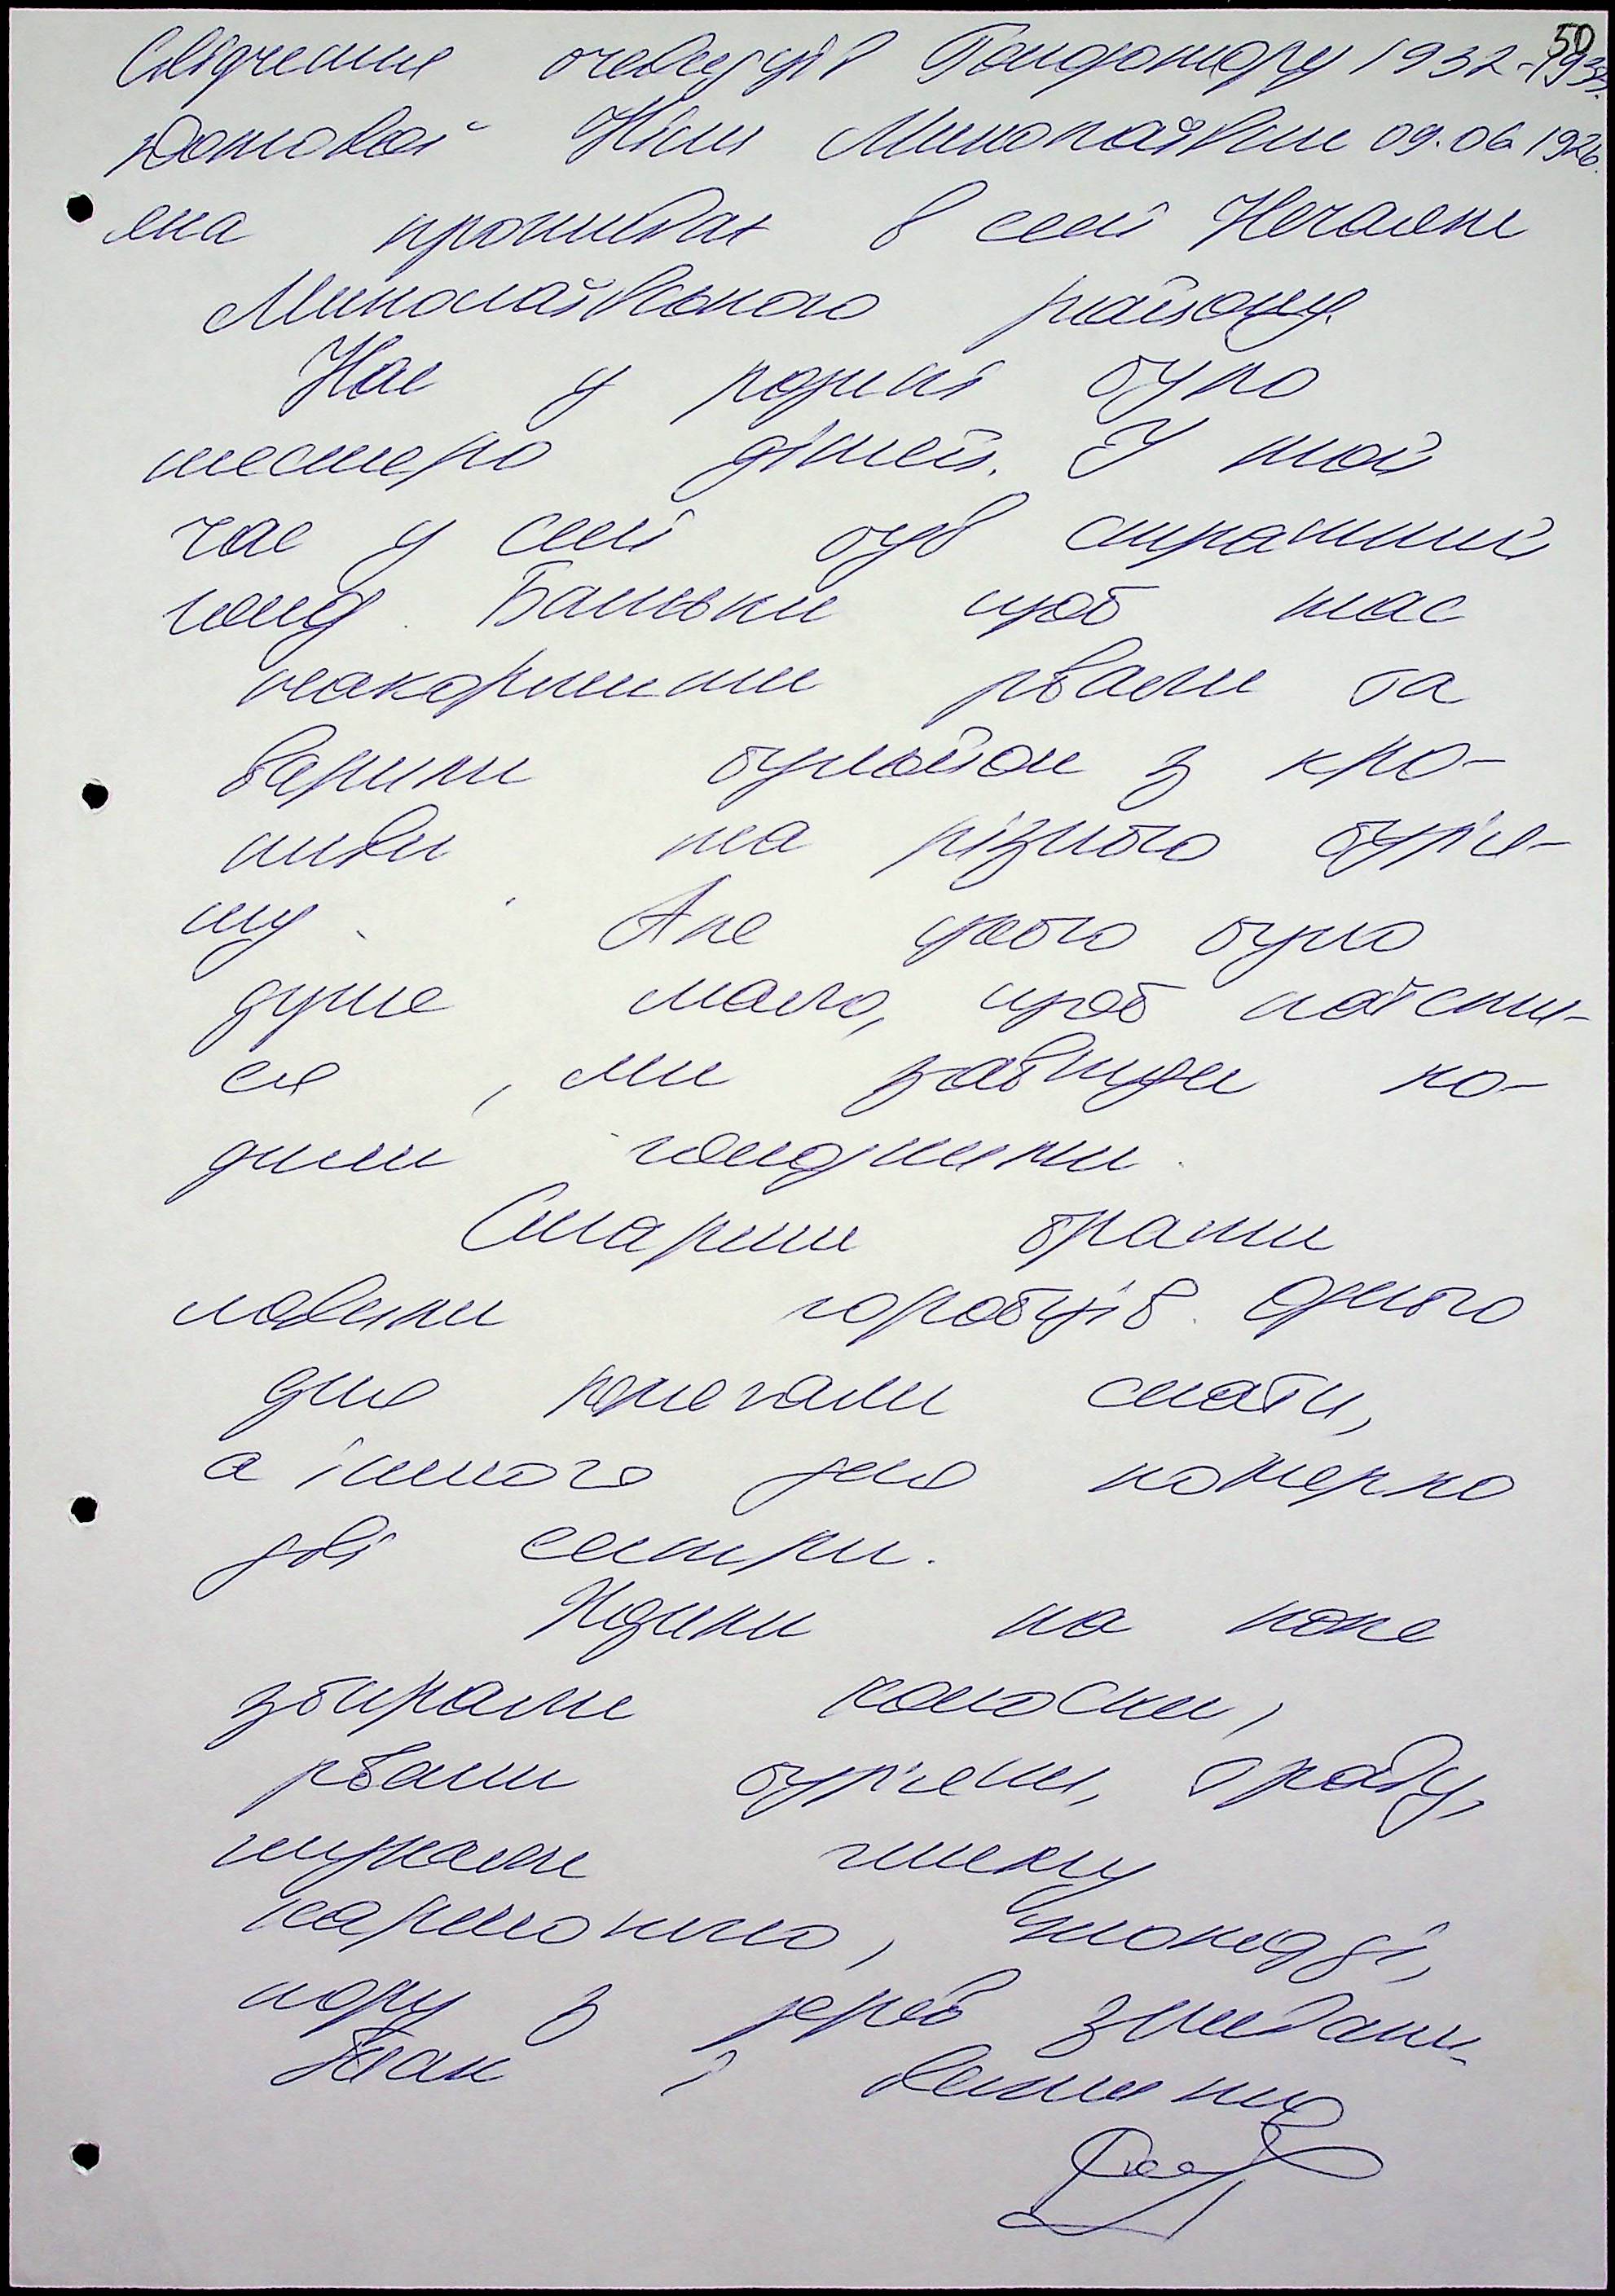 50
Свідчення очевидців Голодомору 1932-1933р.
Ніни Миколаївни 09.06 1926.
яка проживає в селі Нечаяне
Миколаївського району.
Нас у родині було
шестеро дітей. У той
час у селі був страшний
голод. Батьки щоб нас
накормити рвали та
варили бульйон з кро-
пиви та різного бур'я-
ну. Але цього було
дуже мало, щоб наїсти-
ся, ми завжди хо-
дили голодними.
Старши брати
ловили горобців. Одного
дня лягали спати,
а іншого дня померло
дві сестри.
Ходили на поле
збирали колоски,
рвали бур'яни, траву,
шукали гнилу
картоплю, жолуді,
кору з дерев здирали.
Так і вижили